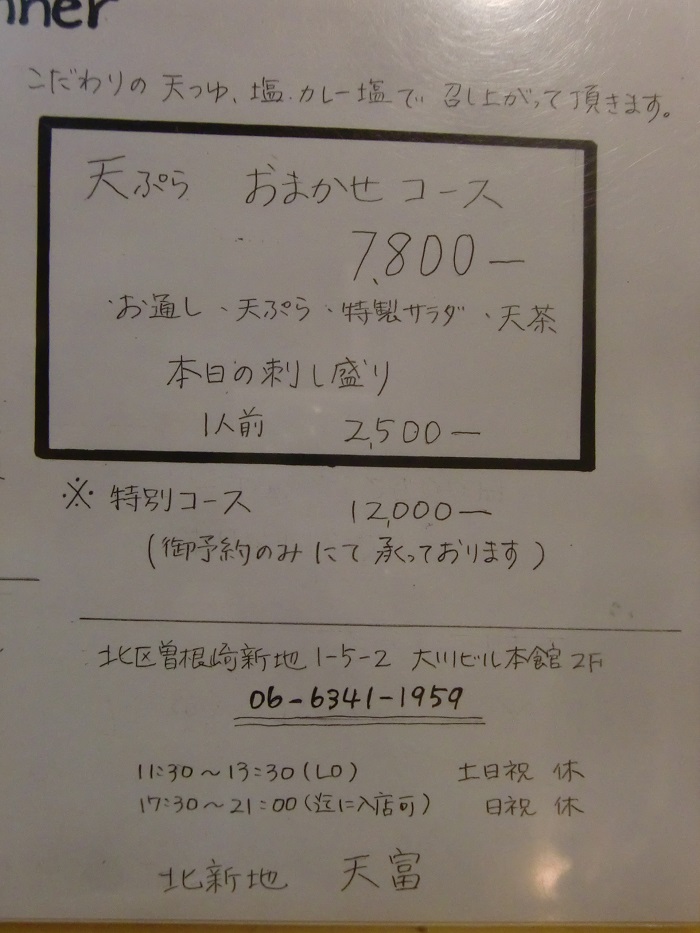 nner
こだわりの 天つゆ、塩、カレー塩で 召し上がって頂きます。
天ぷら おまかせ コース
7,800ー
・お通し 、天ぷら 、特製サラダ 、天茶
本日の刺し盛り
1人前 2,500ー
※ 特別コース 12,000ー
(御予約のみ にて 承っております)
北区曽根崎新地 1-5-2 大川ビル本館 2F
06-6341-1959
11:30～13:30(LO) 土日祝 休
17:30～21:00(迄に入店可) 日祝 休
北新地 天富